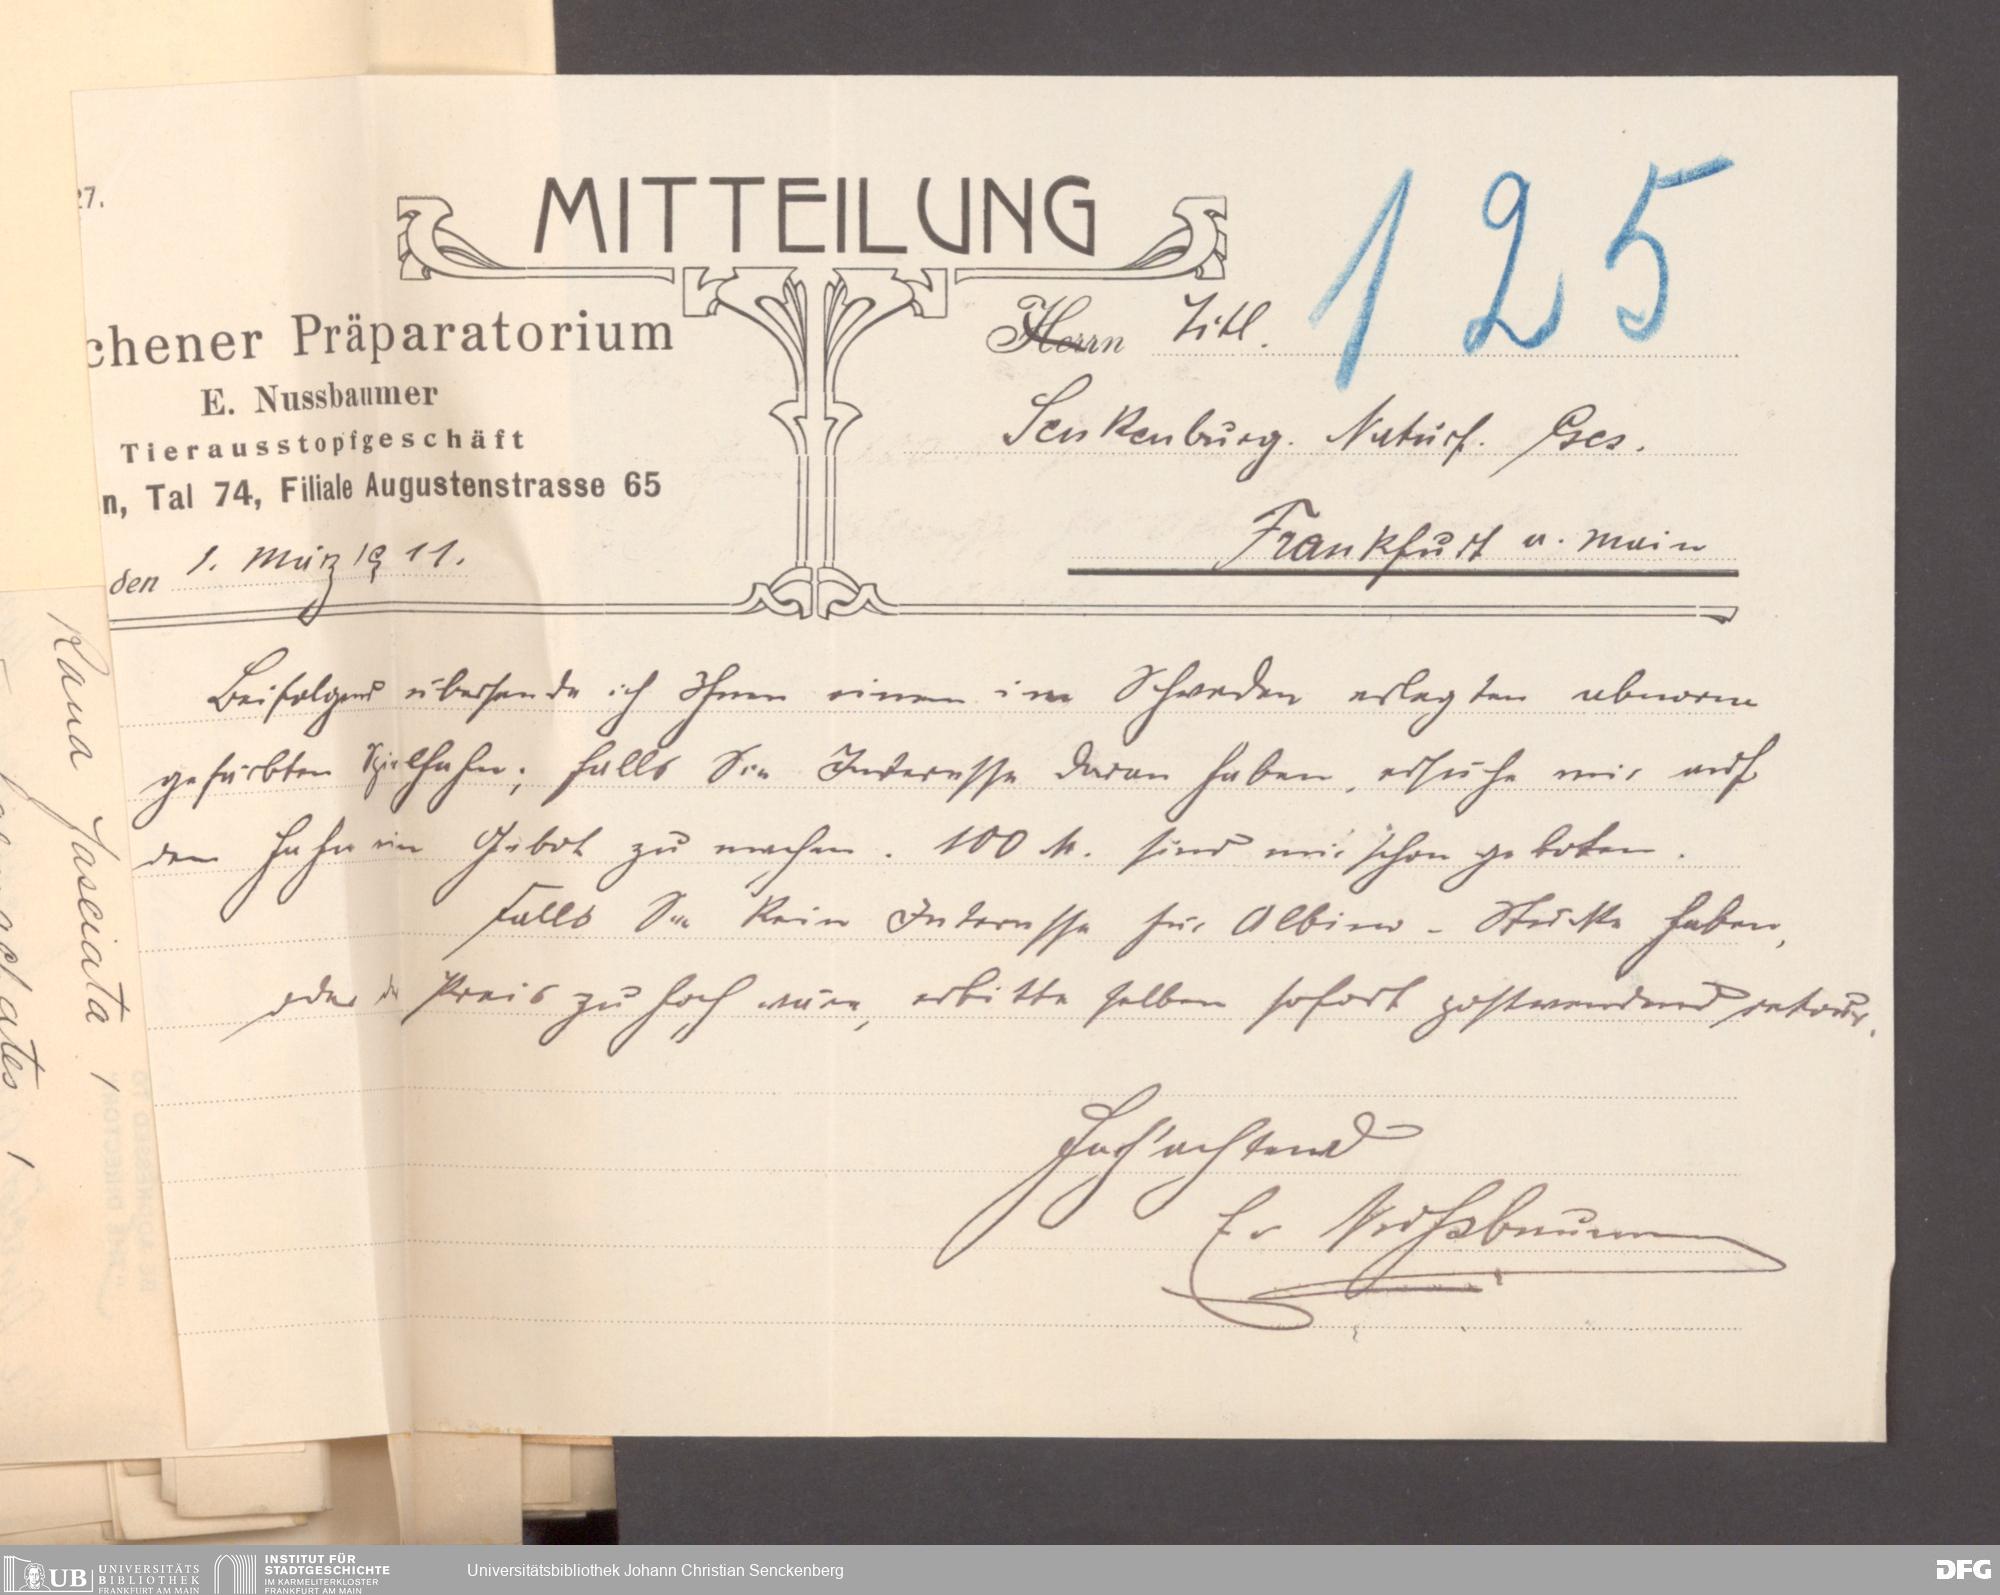 27.
MITTEILUNG
125
chener Präparatorium
E. Nussbaumer
Tierausstopfgeschäft
n, Tal 74, Filiale Augustenstrasse 65
den 1. März 1911.
Herrn Titl.
Senkenburg. Naturf. Ges.
Frankfurt a. Main
Beifolgend übersende ich Ihnen einen in Schweden erlegten abnorm
gefärbten Spielhahn; falls Sie Interesse daran haben, ersuche mir auf
den Hahn ein Gebot zu machen. 100 M. sind mir schon geboten.
Falls Sie kein Interesse für Albino-Stücke haben,
oder der Preis zu hoch wäre, erbitte selben sofort postwendend retour.
Hochachtend
E. Nussbaumer
Rana fasciata 1
UB UNIVERSITÄTS
BIBLIOTHEK
FRANKFURT AM MAIN
INSTITUT FÜR
STADTGESCHICHTE
IM KARMELITERKLOSTER
FRANKFURT AM MAIN
Universitätsbibliothek Johann Christian Senckenberg
DFG